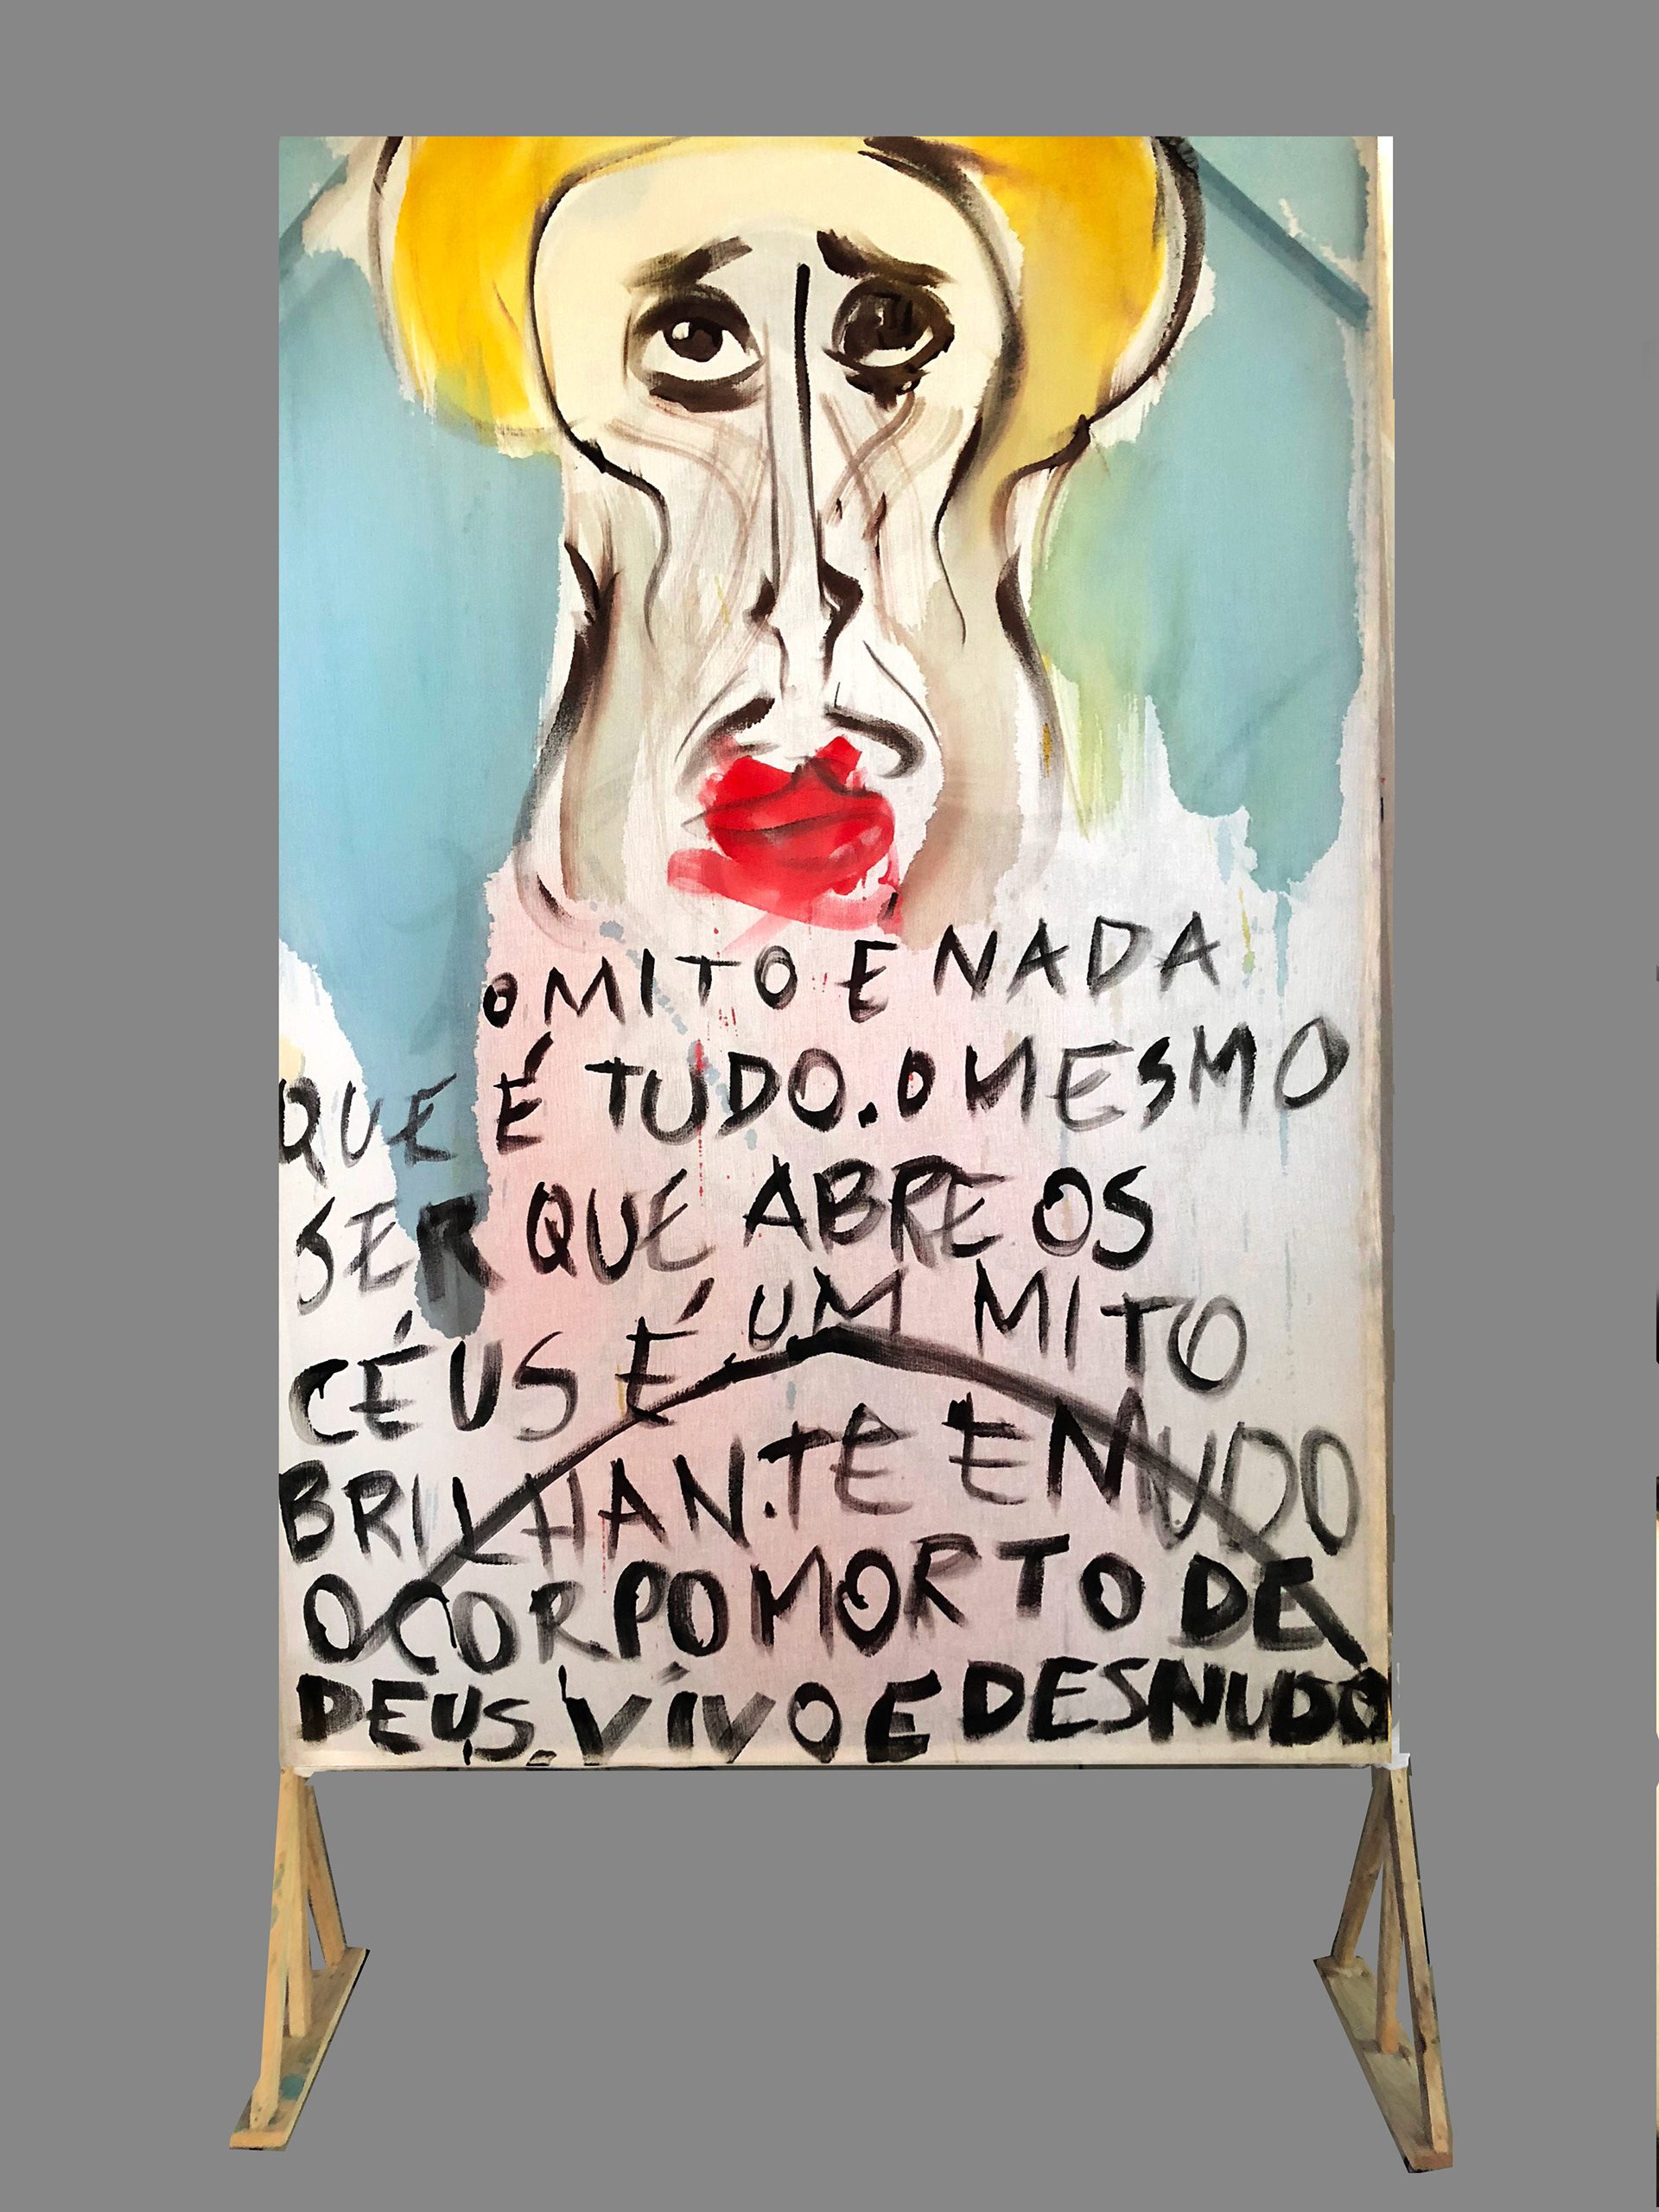 O MITO E NADA
QUE É TUDO. O MESMO
SER QUE ABRE OS
CÉUS É UM MITO
BRILHAN.TE E MUDO
O CORPO MORTO DE
DEUS, VÍVO E DESNUDO